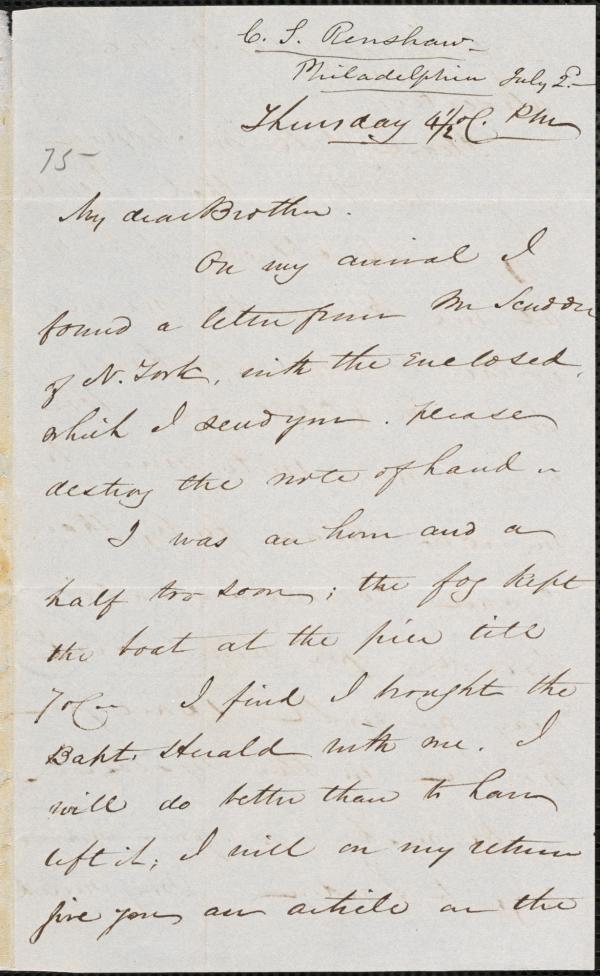 C. S. Renshaw
Philadelphia July 2d
Thursday 4½ oC. PM
75-
My dear Brother.
On my arrival I
found a letter from Mr Scudder
of N. York, with the enclosed,
which I send you. please
destroy the note of hand
I was an hour and a
half too soon; the fog kept
the boat at the pier till
7 oC. I find I brought the
Bapt. Herald with me. I
will do better than to have
left it; I will on my return
give you an article on the